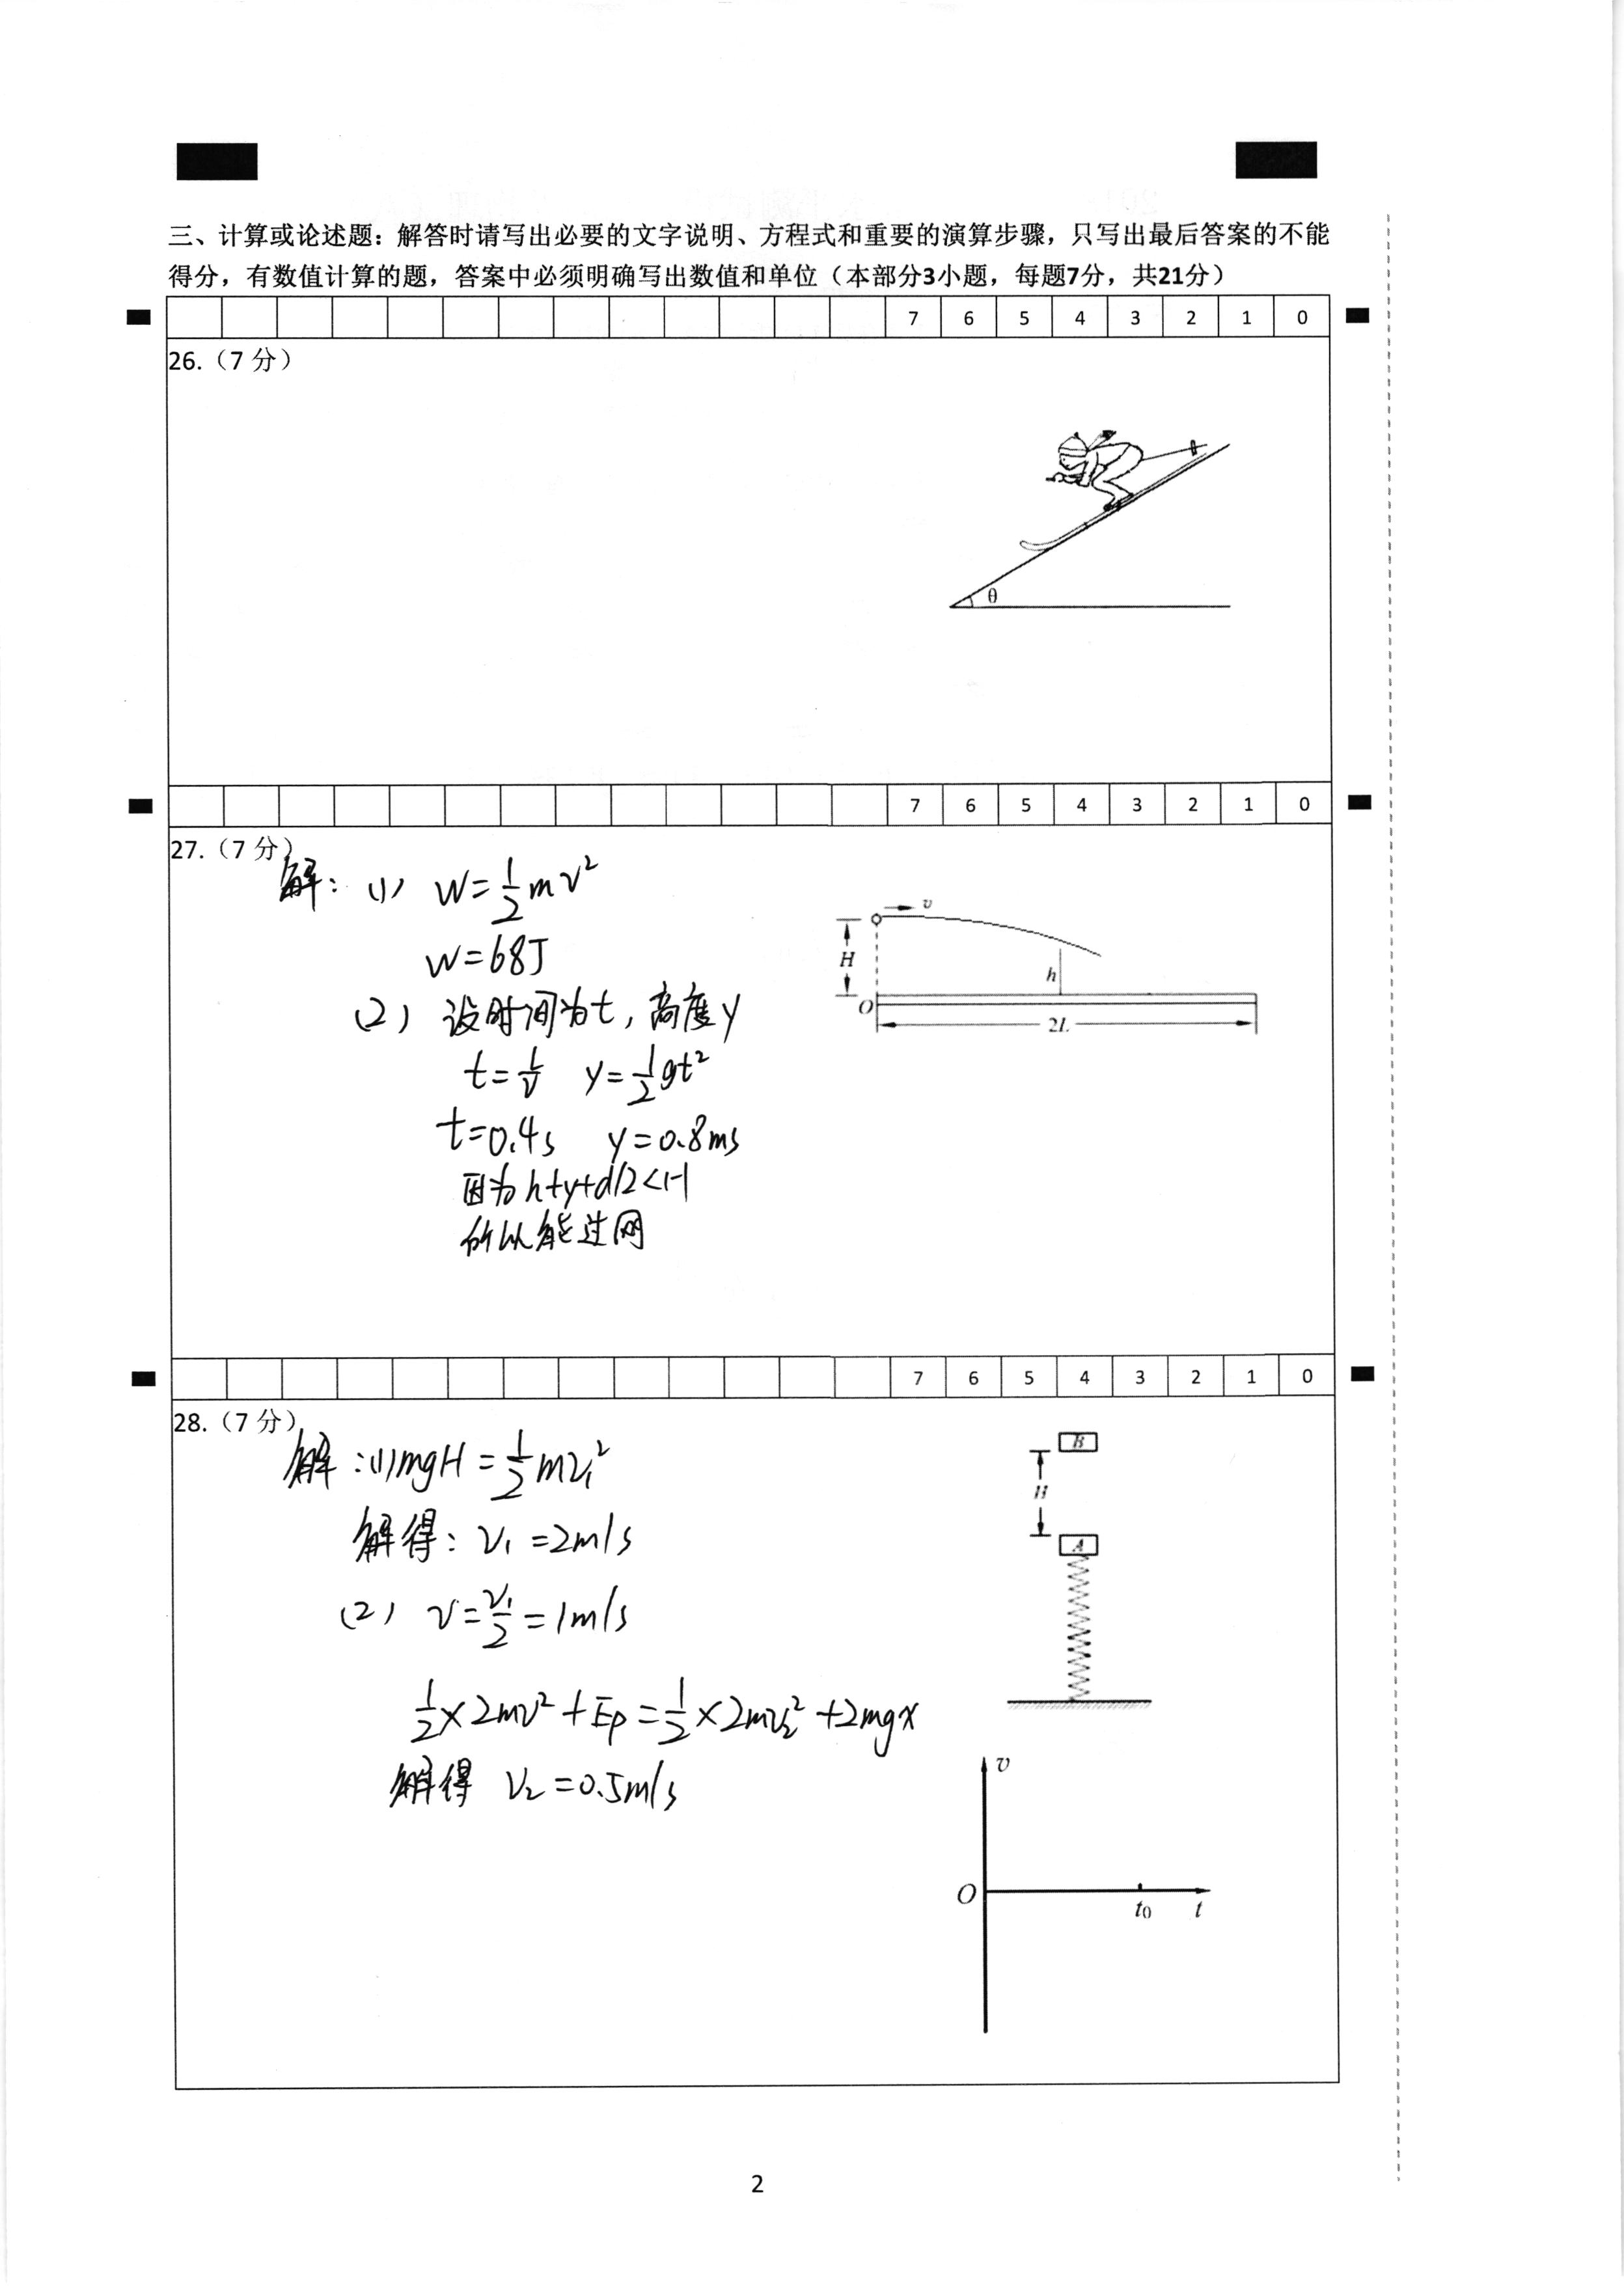 三、计算或论述题：解答时请写出必要的文字说明、方程式和重要的演算步骤，只写出最后答案的不能
得分，有数值计算的题，答案中必须明确写出数值和单位（本部分3小题，每题7分，共21分）
7 6 5 4 3 2 1 0
26.（7 分）
θ
7 6 5 4 3 2 1 0
27.（7 分）
解：(1) W=½mv²
W=68J
(2) 设时间为t，高度y
t=L/v y=½gt²
t=0.4s y=0.8ms
因为h+y+d/2<H
所以能过网
v
H
h
O
2L
7 6 5 4 3 2 1 0
28.（7 分）
解：(1)mgH=½mv₁²
解得：v₁=2m/s
(2) v=v₁/2=1m/s
½×2mv²+Ep=½×2mv₂²+2mgx
解得 v₂=0.5m/s
B
H
A
v
O
t₀ t
2